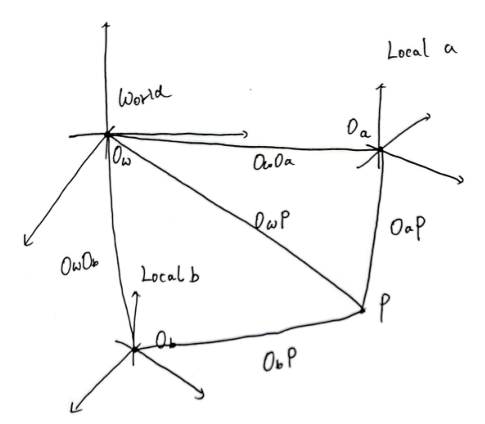 Local a
World
Oa
Ow
OwOa
OwP
OaP
OwOb
Local b
P
Ob
ObP